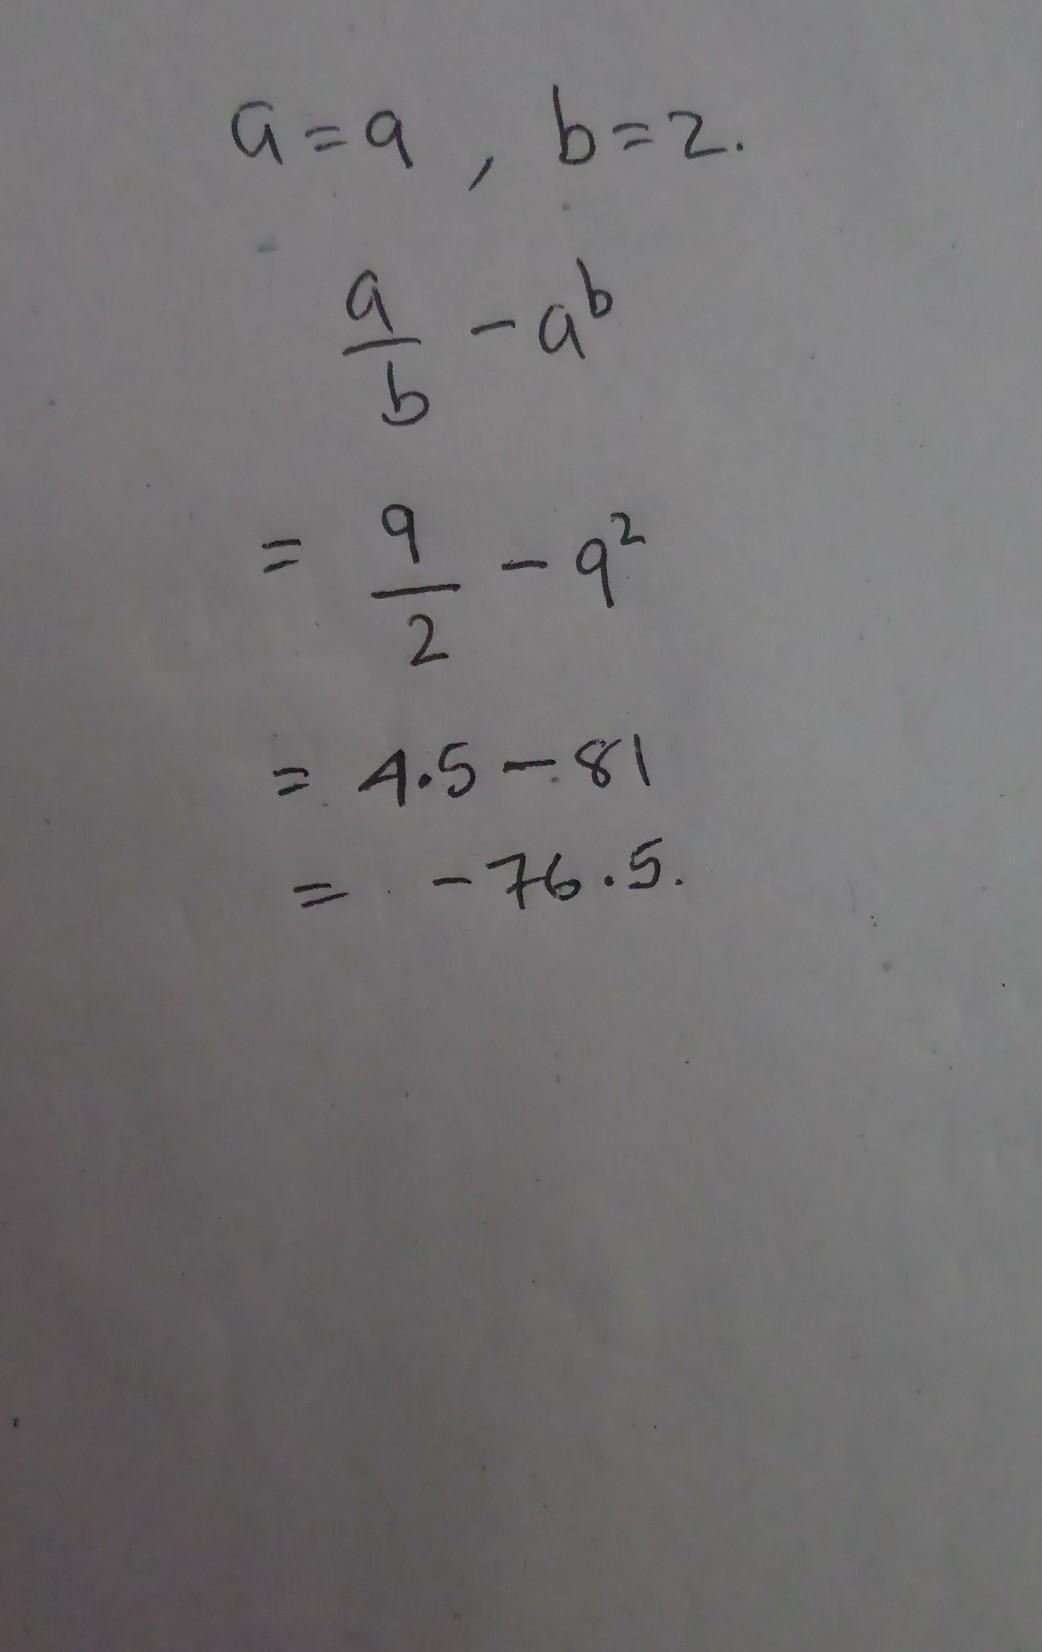 a = 9 , b = 2.
a/b - a^b
= 9/2 - 9²
= 4.5 - 81
= -76.5.